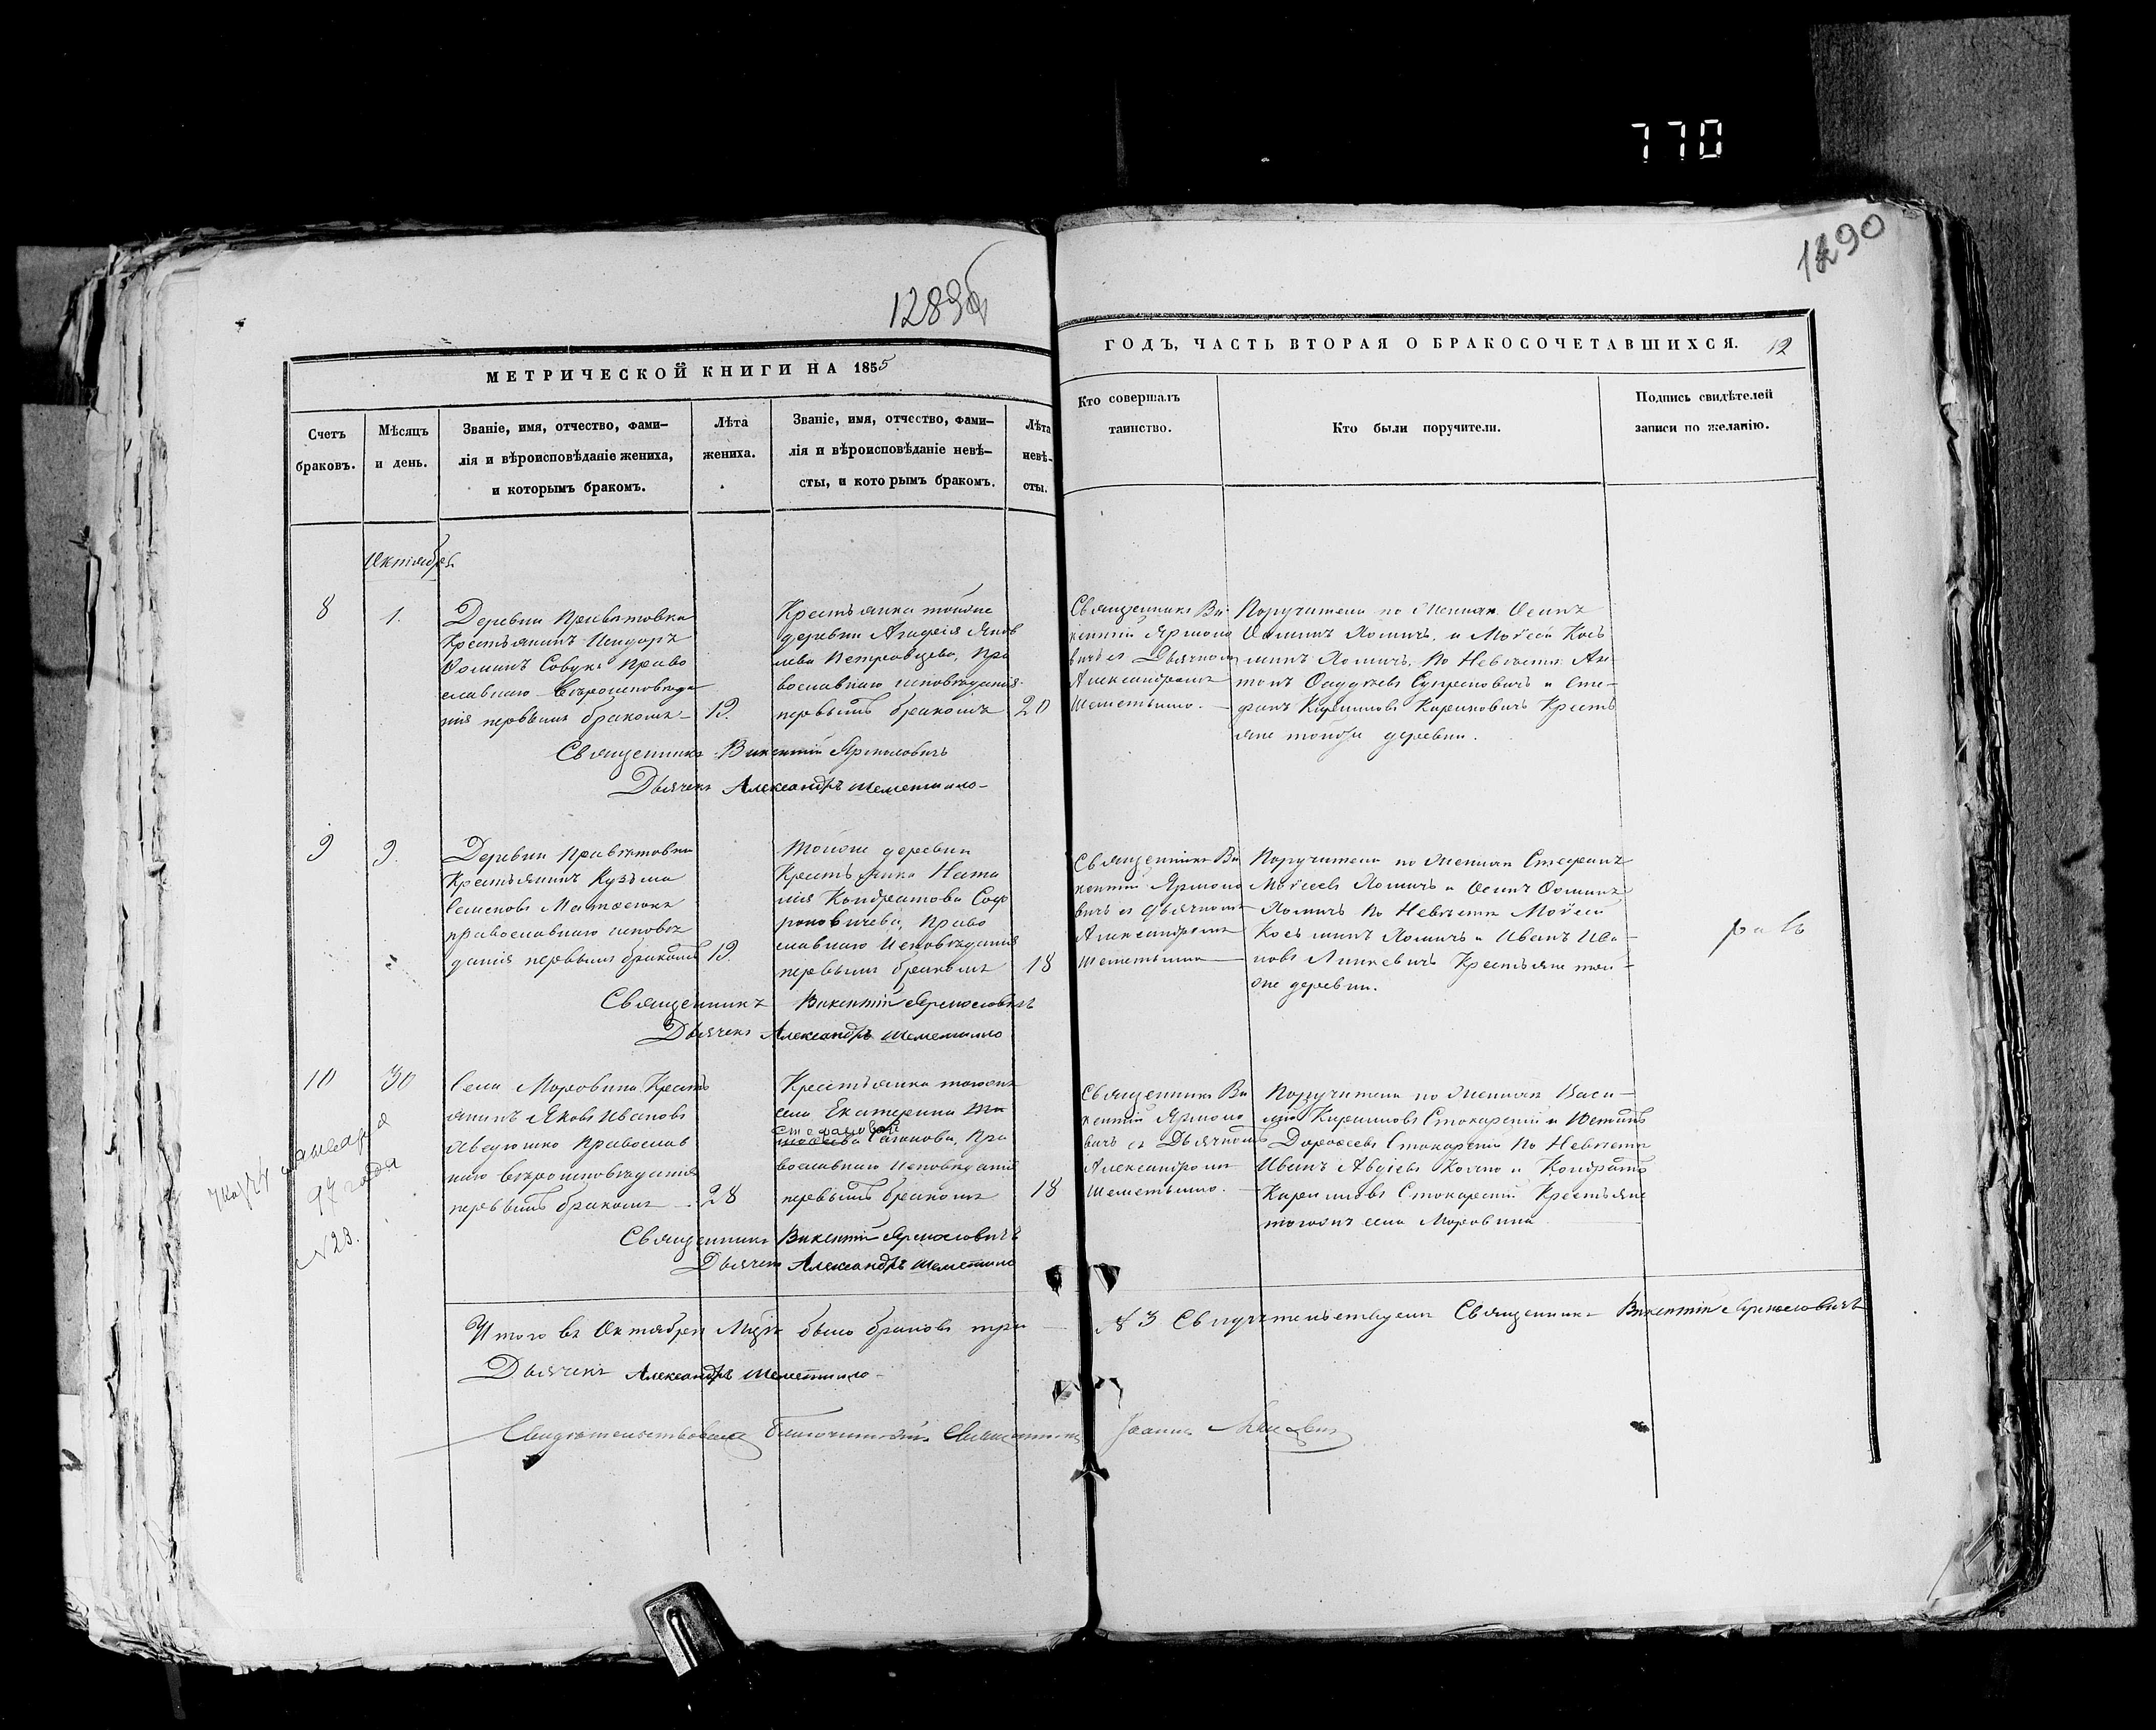 770
1289б
1290
МЕТРИЧЕСКОЙ КНИГИ НА 1855
ГОДЪ, ЧАСТЬ ВТОРАЯ О БРАКОСОЧЕТАВШИХСЯ. 12
Счетъ браковъ.
Мѣсяцъ и день.
Званіе, имя, отчество, фами-
лія и вѣроисповѣданіе жениха,
и которымъ бракомъ.
Лѣта жениха.
Званіе, имя, отчество, фами-
лія и вѣроисповѣданіе невѣ-
сты, и кото рымъ бракомъ.
Лѣта невѣ-
сты.
Кто совершалъ
таинство.
Кто были поручители.
Подпись свидѣтелей
записи по желанію.
Октябрь
8
1.
Деревни Привѣтовки
Крестьянинъ Исидоръ
Ѳоминъ Православнаго вѣроисповѣда
нія первымъ бракомъ
19.
Крестьянка тойже
деревни Агафія Яков
лева Петровцева, Пра
вославнаго исповѣданія
первымъ бракомъ
20
Священникъ Ви
кентій Ярмоло
вичъ съ Дьячкомъ
Александромъ
Шеметилло.
Поручители по Женихѣ Осипъ
Ѳоминъ Хомичъ, и Мо́ѵсей Кось
минъ Хомичъ, По Невѣстѣ Ан
тонъ и Сте-
фанъ Кириловъ Крестья
яне тойже деревни.
Священникъ Викентій Ярмоловичъ
Дьячекъ Александръ Шеметилло
9
9.
Деревни Привѣтовки
Крестьянинъ Кузьма
Семеновъ
православнаго исповѣ
данія первымъ бракомъ
19.
Тойже деревни
Крестьянка Ната
лія Кондратова Соф
роновичева, Право
славнаго Исповѣданія
первымъ бракомъ
18
Священникъ Ви
кентій Ярмоло
вичъ съ Дьячкомъ
Александромъ
Шеметилло
Поручители по Женихѣ Стефанъ
Моѵсеевъ Хомичъ и Осипъ Ѳоминъ
Хомичъ По Невѣстѣ Моѵсей
Косьминъ Хомичъ и Иванъ Ива
новъ Крестьяне той-
же деревни.
Священникъ Викентій Ярмоловичъ
Дьячекъ Александръ Шеметилло
10
30
января
97 года
№ 23.
Села Моровина Кресть
янинъ Яковъ Ивановъ
Авдюшко Православ
наго вѣроисповѣданія
первымъ бракомъ
28
Крестьянка тогожъ
села Екатерина
Стефанова
Пра
вославнаго Исповѣданія
первымъ бракомъ
18
Священникъ Ви
кентій Ярмоло
вичъ съ Дьячкомъ
Александромъ
Шеметилло.
Поручители по Женихѣ Васи-
лій Кириловъ и
Дорофеевъ По Невѣстѣ
Иванъ Авдіевъ и Кондратъ
Кириловъ Крестьяне
тогожъ села Моровина
Священникъ Викентій Ярмоловичъ
Дьячекъ Александръ Шеметилло
Итого въ Октябрѣ Мцѣ было браковъ три
№ 3 Свидѣтельствуемъ Священникъ Викентій Ярмоловичъ
Дьячекъ Александръ Шеметилло
Свидѣтельствовалъ Благочинный Священникъ Іоаннъ